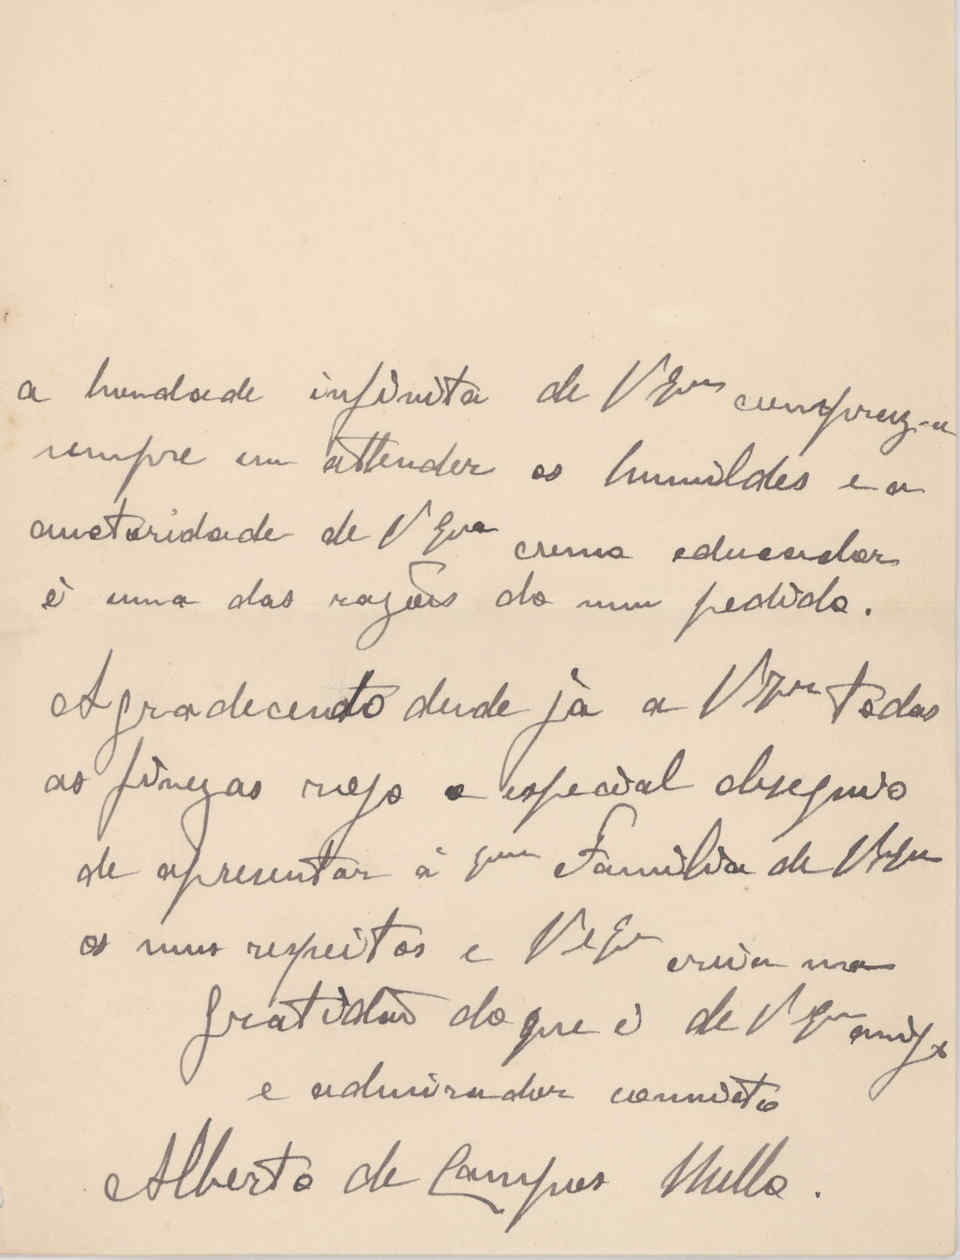 a bondade infinita de V Exª compraz-se
sempre em attender os humildes e a
auctoridade de V Exª como educador
é uma das razões do meu pedido.
Agradecendo desde já a V Exª todas
as finezas rogo o especial obsequio
de apresentar á Exma Familia de V Exª
os meus respeitos e V Exª creia na
gratidão do que é de V Exª amigo
e admirador convicto
Alberto de Campos Mello.